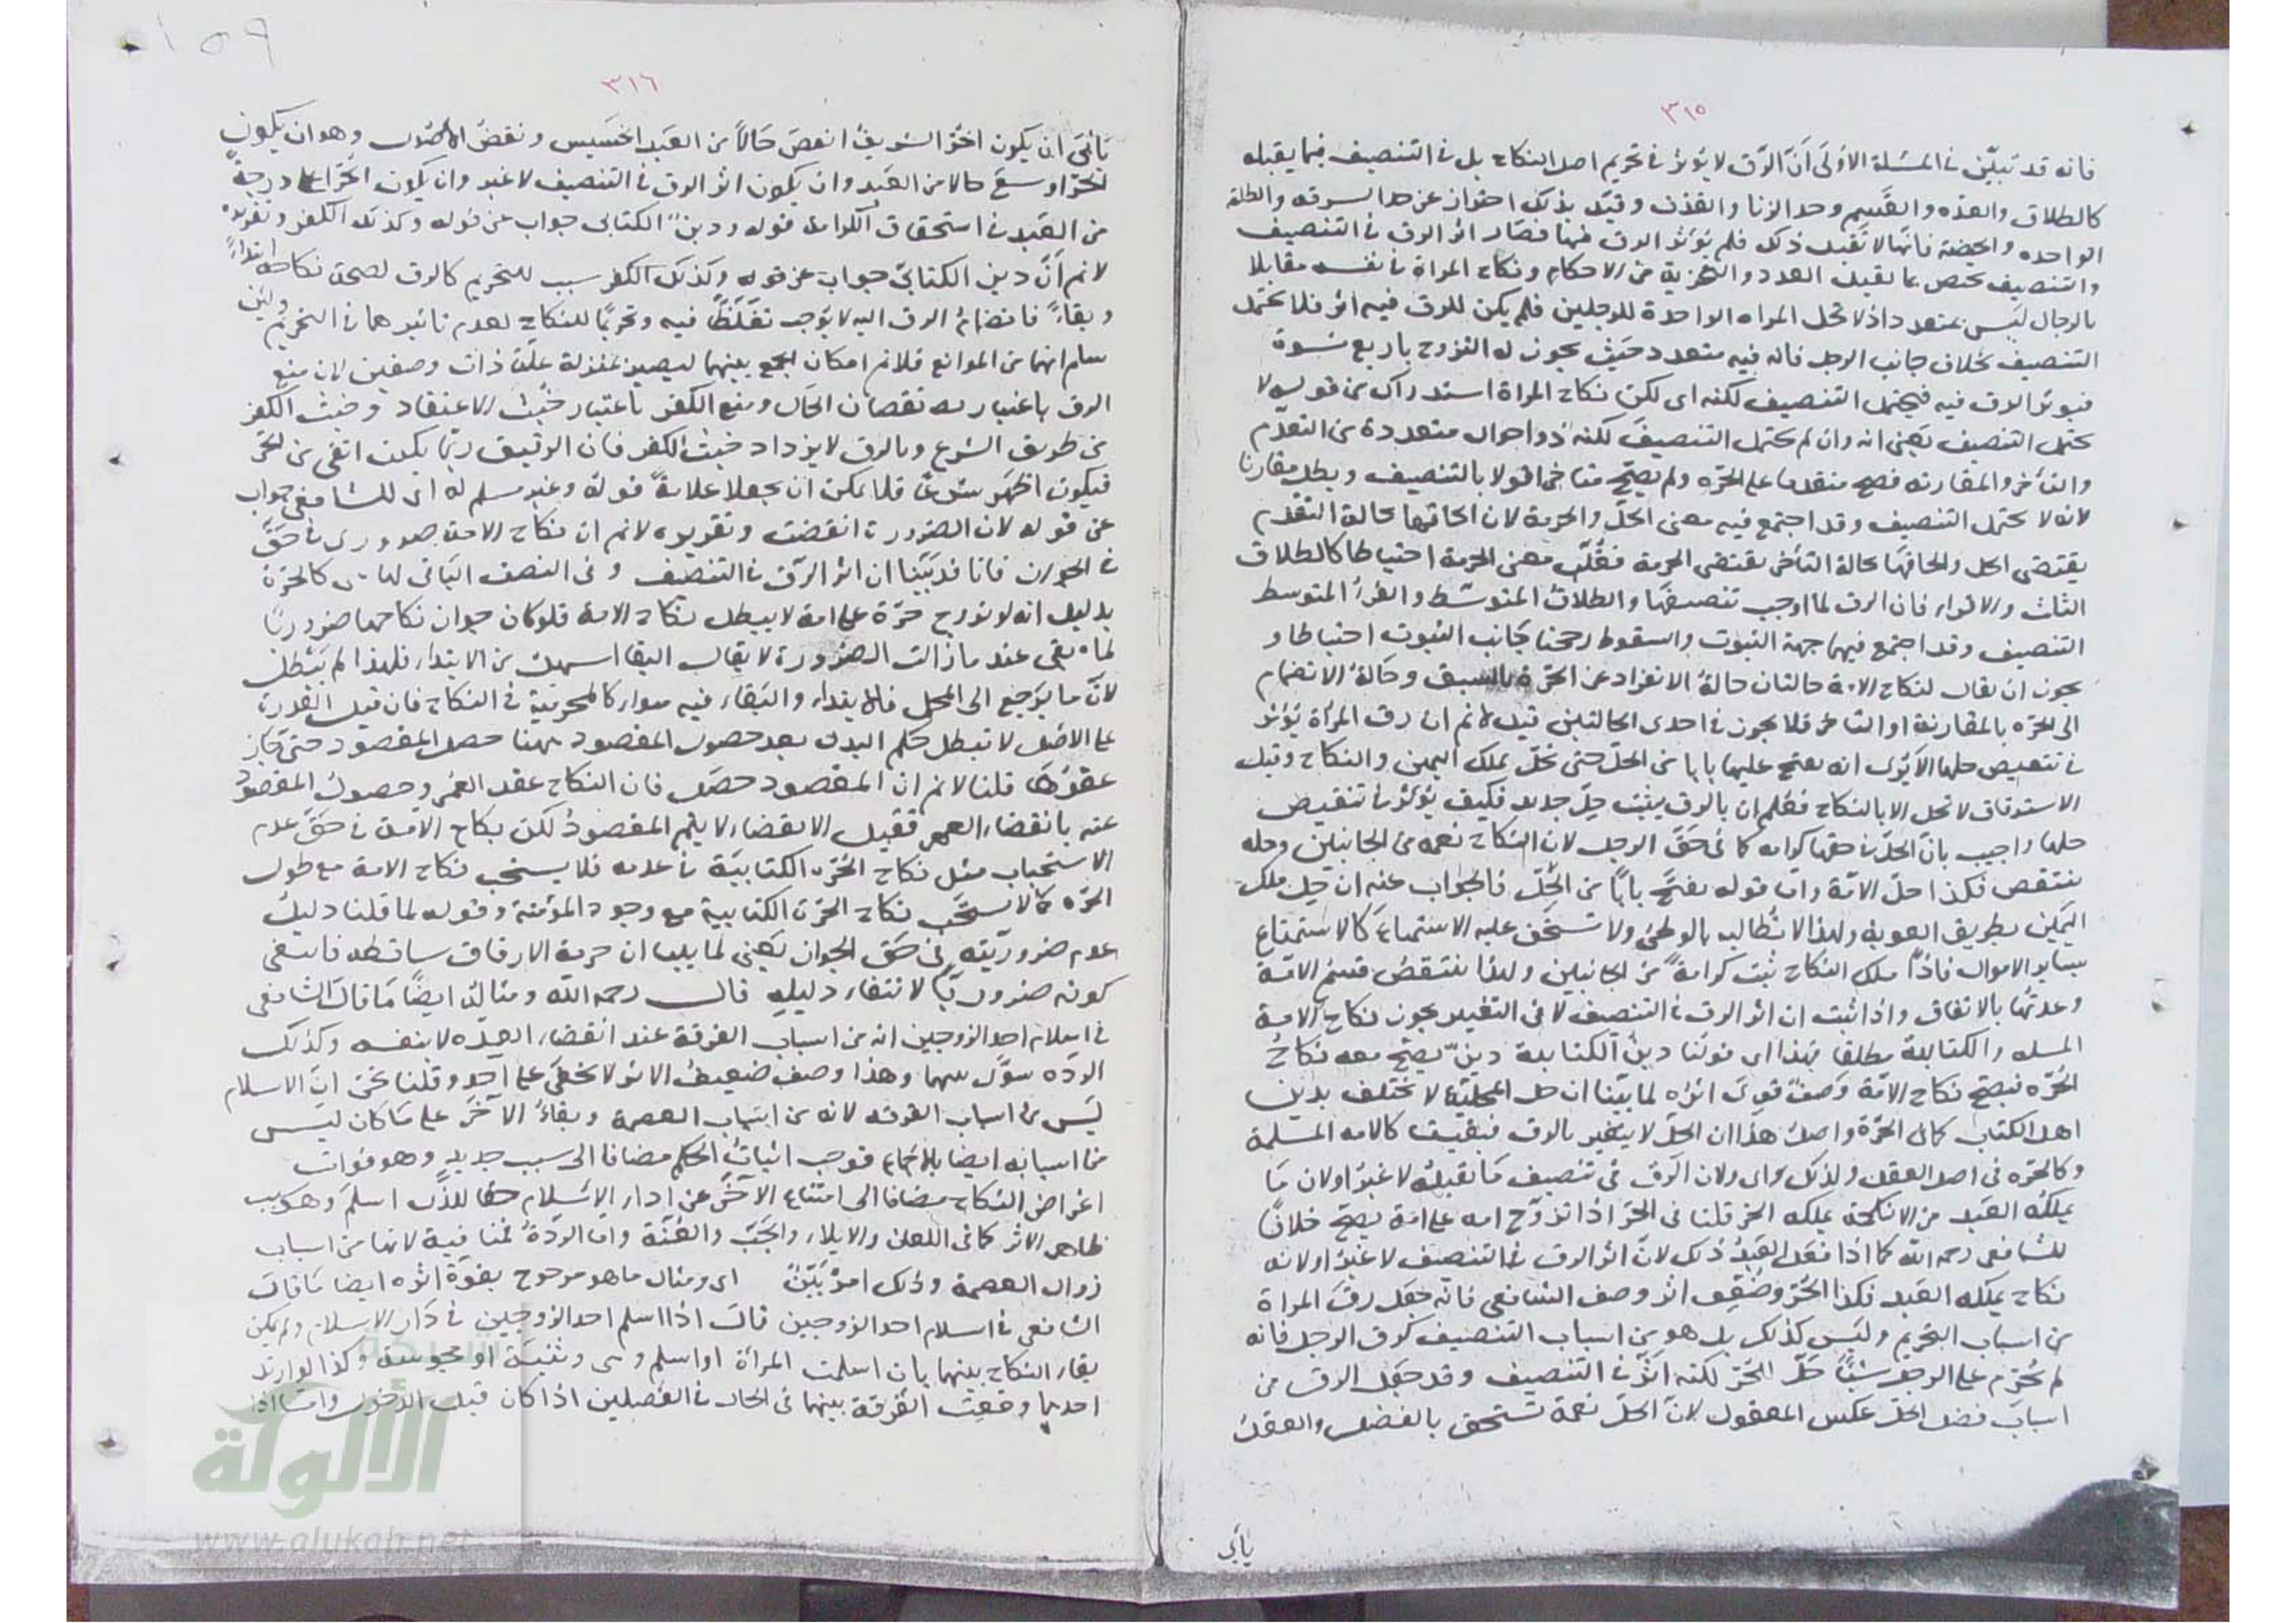 ٣١٥
فانه قد تبيّن في المسئلة الاولى أنّ الرّق لا يؤثر في تحريم اصل النكاح بل في التنصيف فيما يقبله
كالطلاق والعدّه والقَسم وحد الزنا والقذف وقيّد بذلك احتراز عن حد السرقه والطلقة
الواحده والحيضة فانها لا تقبل ذلك فلم يؤثر الرق فيها فصار اثر الرق في التنصيف
والتنصيف يختص بما يقبل العدد والتجزية من الاحكام ونكاح المراة في نفسه مقابلا
بالرجال ليس بمتعدد اذ لا تحل المراه الواحدة للرجلين فلم يكن للرق فيه اثر فلا يحتمل
التنصيف بخلاف جانب الرجل فانه فيه متعدد حيث يجوز له التزوج باربع نسوة
فيوثر الرق فيه فيحتمل التنصيف لكنه اى لكن نكاح المراة استدراك من قوله لا
يحتمل التنصيف يعني انه وان لم يحتمل التنصيف لكنه ذو احوال متعددة من التقدم
والتأخر والمقارنه فصح متقدما على الحرّه ولم يصحّ متاخرا قولا بالتنصيف وبطل مقارنا
لانه لا يحتمل التنصيف وقد اجتمع فيه معنى الحلّ والحرمة لان الحاقها بحالة التقدم
يقتضى الحل والحاقها بحالة التأخر يقتضى الحرمة فغُلّب معنى الحرمة احتياطا كالطلاق
الثالث والاقراء فان الرق لما اوجب تنصيفها والطلاق المتوسّط والقرءُ المتوسط
التنصيف وقد اجتمع فيهما جهة الثبوت والسقوط رجحنا جَانب الثبوت احتياطا و
يجوز ان يقال لنكاح الامة حالتان حالةُ الانفراد عن الحرّة بالسبق وحَالةُ الانضمام
الى الحرّه بالمقارنة او التاخر فلا يجوز في احدى الحالتين قيل لا نم ان رق المرأة يؤثر
في تنقيص حلها الا يُرى انه يفتح عليها بابا من الحلّ حتى تحلّ بملك اليمين والنكاح وقبل
الاسترقاق لا تحل الا بالنكاح فعُلم ان بالرق يثبت حِلّ جديد فكيف يؤثر في تنقيص
حلها واجيب بانّ الحلّ في حقها كرامة كما في حَقّ الرجل لان النكاح نعمة من الجانبين وحله
ينتقص فكذا حلّ الامّة وامّا قوله يفتح بابًا من الحِلّ فالجواب عنه ان حِل ملك
اليَمين بطريق العوبة ولهذا لا تُطالبه بالوطئ ولا تستحق عليه الاستمتاع كالاستمتاع
بساير الاموال فاذًا ملك النكاح ثبت كرامةً من الجانبين ولهذا ينتقص قسم الامّة
وعدتها بالاتفاق واذا ثبت ان اثر الرق في التنصيف لا في التغيير يجوز نكاح الامة
المسلمه والكتابية مطلقا لهذا اى قولنا دينُ الكتابية دينٌ يصحّ معه نكاحُ
الحُرّه فيصحّ نكاح الامّة وصفٌ قوىَ اثره لما بيّنا ان حل المحلّية لا تختلف بدين
اهل الكتاب كما في الحرّة واصلُ هذا ان الحلّ لا يتغير بالرق فبقيت كالامه المسلمة
وكالحرّه في اصل العقد ولذلك اى ولان الرّق في تنصيف مَا يقبله لا غيرُ او لان مَا
يملكُه العَبد من الانكحة يملكه الحر قلنا في الحرّ اذا تزوّج امه على امَة يصحّ خلافًا
للشافعى رحمه الله كما اذا فعَل العَبدُ ذلك لانّ اثر الرق في التنصيف لا غيرُ او لانه
نكاح يملكه العَبد فكذا الحُرّ وضُعف اثر وصف الشافعى فانّه جَعل رقَ المراة
من اسباب التحريم وليَس كذلك بل هو من اسباب التنصيف كرق الرجل فانه
لم يُحرّم على الرجل شيئًا حلّ للحرّ لكنه اثّر في التنصيف وقد جَعل الرق من
اسباب فضل الحلّ عكس المعقول لانّ الحلّ نعمة تستحق بالفضل والعقلُ
يأبى
١٥٩
٣١٦
يأبى ان يكون الحُرّ الشريفُ انقصَ حَالاً من العَبد الخَسيس ونقضُ الأصُول وهو ان يكون
الحرّ اوسعَ حالا من العَبد وان يكون اثر الرق في التنصيف لا غير وان يكون الحُرّ اعلى درجةً
من العَبد في استحقاق الكرامة قوله ودينُ الكتابى جواب عن قوله وكذلك الكفر وتقريرُه
لا نم أنّ دين الكتابىّ جواب عن قوله وكذلك الكفر سبب للتحريم كالرق لصحة نكاحه ابتداءً
وبقاءً فانضمامُ الرق اليه لا يُوجب تغلّظًا فيه وتحريمًا للنكاح لعدم تاثيرهما في التحريم ولئن
سلم انهما من الموانع فلا نم امكان الجمع بينهما ليصير بمنزلة علّة ذات وصفين لان منع
الرق باعتبار نقصان الحَال ومنع الكفر باعتبار خُبث الاعتقاد وخبث الكفر
من طريق الشرع وبالرق لا يزداد خبث الكفر فان الرقيق ربّما يكون اتقى من الحُر
فيكون اظهَر شرعا فلا يمكن ان يجعلا علّةً قوله وغير مسلم له اى للشافعى جواب
عن قوله لان الضرورة انقضت وتقريره لا نم ان نكاح الامة ضرورى في حَقّ
الجواز فانا قد بَيّنا ان اثر الرّق في التنصيف وفى النصف الباقى كالحرّة
بدليل انه لو تزوج حُرّة على امة لا يبطل نكاح الامة فلو كان جواز نكاحها ضروريًا
لما بقى عند ما زالت الضرورة لا يقال البقا اسهل من الابتداء فلهذا لم يَبْطل
لانّ ما يرجع الى المحل فالابتداء والبقاء فيه سواء كالمحرمية في النكاح فان قيل القدرة
على الاصل لا تبطل حكم البدل بعد حصول المقصود ههنا حصل المقصود حتى جاز
عقدُها قلنا لا نم ان المقصود حصَل فان النكاح عقد العُمر وحصولُ المقصود
عنه بانقضاء العمر فقبل الانقضاء لا يتم المقصودُ لكن نكاح الامَة في حَقّ عدم
الاستحباب مثل نكاح الحُرّه الكتابيّة في عدمه فلا يستحب نكاح الامة مع طول
الحرّه كما لا يستحَب نكاح الحرّة الكتابية مع وجود المؤمنة وقوله لما قلنا دليلُ
عدم ضروريّته في حَق الجواز يَعني لما بينا ان حرمة الارقاق ساقطه فانتفى
كونه ضروريًا لانتفاء دليله قال رحمه الله ومثالهُ ايضًا مَا قالَ الشافعى
في اسلام احد الزوجين انه من اسباب الفرقة عند انقضاء العِدّه لا بنفسه وكذلك
الردّه سوّى بينهما وهذا وصف ضعيفُ الاثر لا يخفى على احد وقلنا نحن انّ الاسلام
ليَس من اسباب الفرقه لانه من اسباب العصمة وبقاءُ الآخَر على مَا كان ليَس
من اسبابه ايضا بالاجماع فوجب اثباتُ الحكم مضافا الى سبب جديد وهو فوات
اغراض النكاح مضافا الى امتناع الآخَر عن اداء الاسلام حقا للذى اسلَم وهو سبب
ظاهر الاثر كما في اللعان والايلاء والجَبّ والعُنّة وامّا الردّةُ فمنافية لانها من اسباب
زوال العصمة وذلك امرٌ بَيّنٌ اى ومثال ما هو مرجوح بقوّة اثره ايضا مَا قالَ
الشافعى في اسلام احد الزوجين قالَ اذا اسلم احد الزوجين في دَار الاسلام ولم يكن
بقاء النكاح بينهما بان اسلمت المراة او اسلم وهى وثنيَة او مجوسية وكذا لو ارتد
احدهما وقعت الفُرقة بينهما في الحال في الفصلين اذا كان قبل الدخول وامّا اذا
الألوكة
www.alukah.net